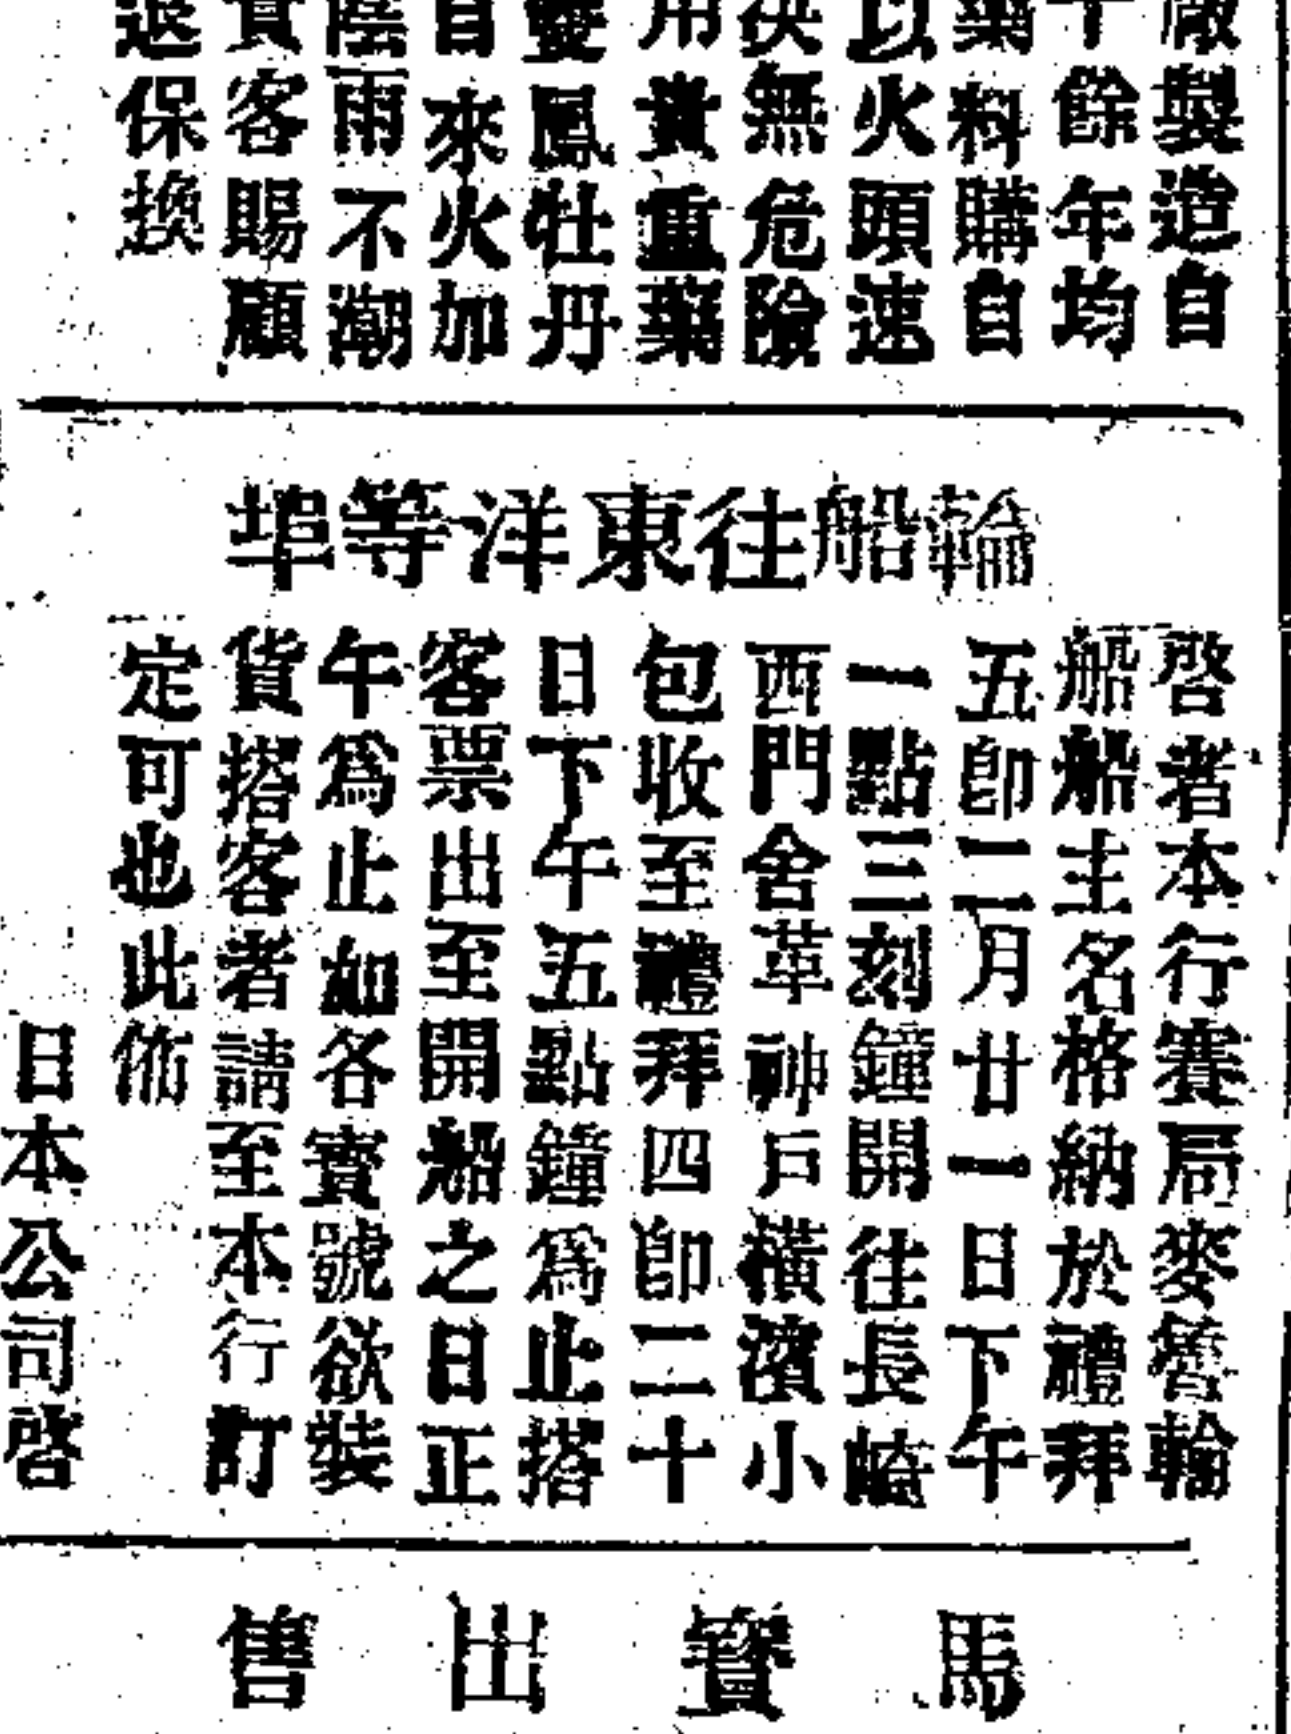 廠製造自
十餘年均
藥料購自
以火頭速
決無危險
用貴重藥
雙鳳牡丹
自來火加
陰雨不潮
貴客賜顧
退保換
輪船往東洋等埠
啓者本行賽局麥輪
船船主名格納於禮拜
五卽二月廿一日下午
一點三刻鐘開往長崎
西門舍革神戶橫濱小
包收至禮拜四卽二十
日下午五點鐘爲止搭
客票出至開船之日正
午爲止如各寶號欲裝
貨搭客者請至本行訂
定可也此佈
日本公司啓
馬寶出售